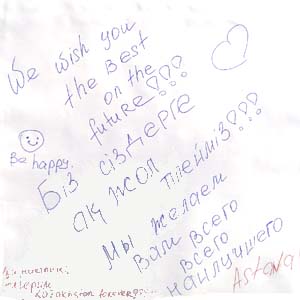 We wish you
the Best
on the
future!!!
Be happy.
Біз сіздерге
ақ жол тілейміз!!!
Мы желаем
Вам всего
всего
наилучшего
Astana
Kazakhstan forever